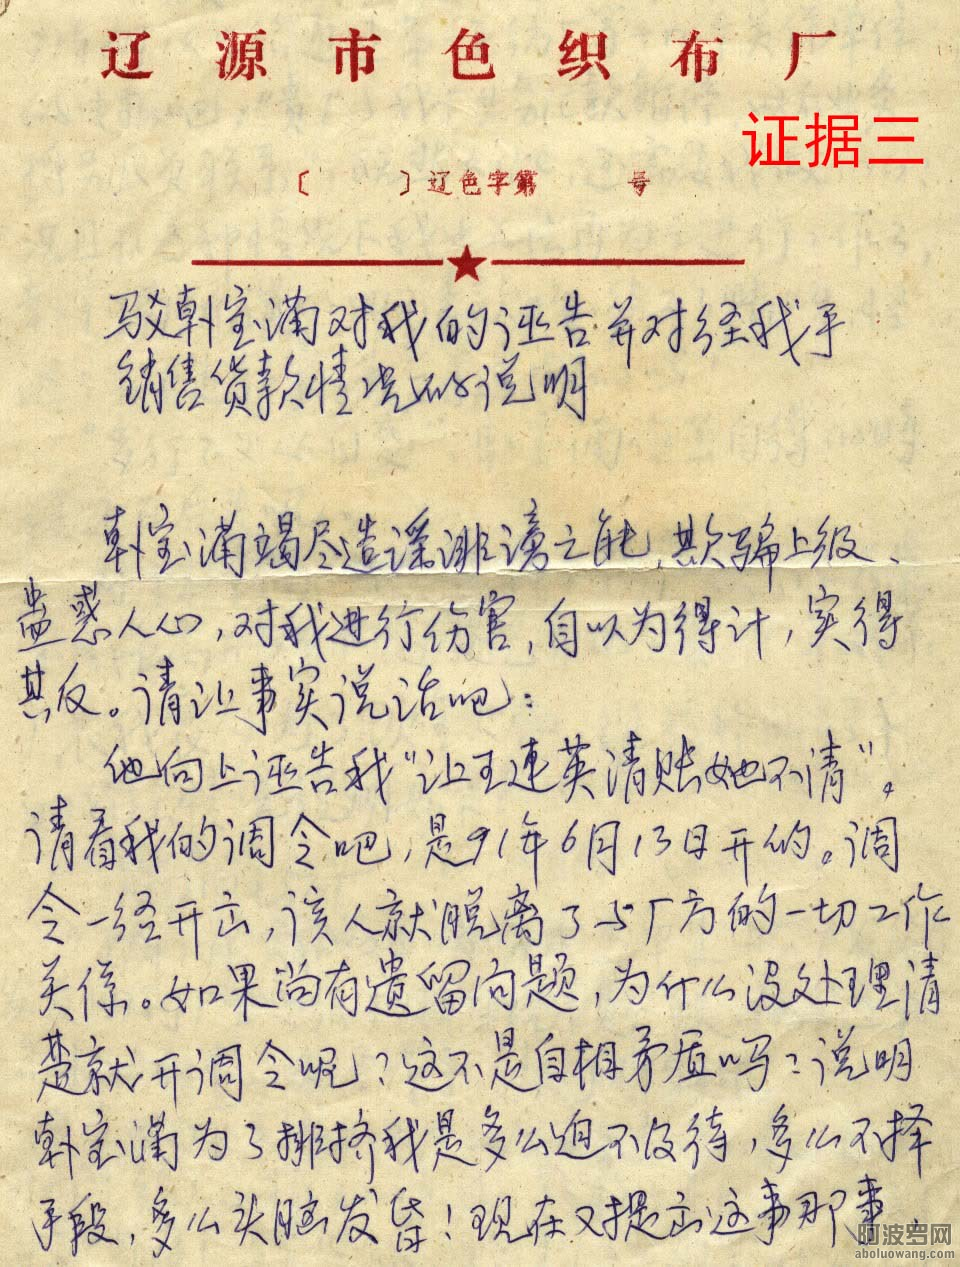 辽源市色织布厂
证据三
〔 〕辽色字第 号
驳韩宝满对我的诬告并对经我手
销售货款情况的说明
韩宝满竭尽造谣诽谤之能,欺骗上级、
蛊惑人心,对我进行伤害,自以为得计,实得
其反。请让事实说话吧:
他向上诬告我“让王连英清账她不清”。
请看我的调令吧,是91年6月13日开的。调
令一经开出,该人就脱离了与厂方的一切工作
关係。如果尚有遗留问题,为什么没处理清
楚就开调令呢?这不是自相矛盾吗?说明
韩宝满为了排挤我是多么迫不及待,多么不择
手段,多么头脑发昏!现在又提出这事那事,
阿波罗网
aboluowang.com